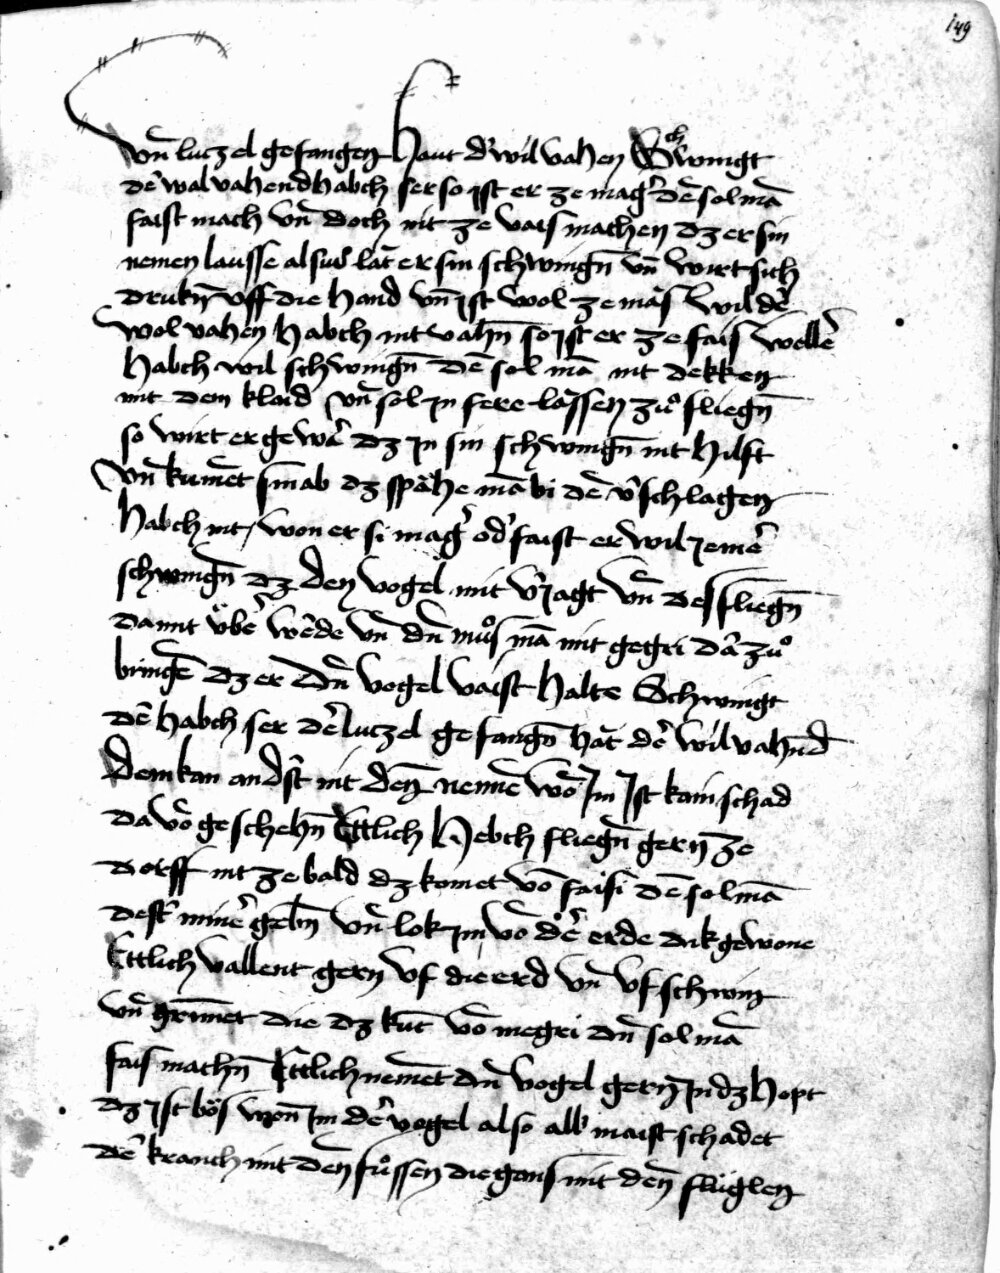 149
vn̄ luczel gefangen haut d' wil vahen Schwingt
de' wal vahend habch ser so ist er ze mag' dē sol mā
faist mach vn̄ doch nit ze vais machen dz er sin
nemen lausse als vil lat er sin schwingn̄ vn̄ wirt sich
drukn̄ vff die hand vn̄ ist wol ze mās wil de'
wol vahen habch nit vahn̄ so ist er ze fais welle'
habch wil schwingn̄ dē sol mā nit dekken
mit dem klaid vn̄ sol in fere lāssen zů fliegn̄
so wirt er gewā' dz in sin schwingn̄ nit hilft
vn̄ kumēt sin ab dz spåhe mā bi dē v'schlagen
habch nit / won er si mag' od' faist er wil jeme'
schwingn̄ dz den vogel mit v'jagt vn̄ des fliegn̄
damit v̈be' we'de vn̄ dn̄ můs mā mit gegri da' zů
bringē dz er dn̄ vogel vaist halte Schwingt
dē habch ser de' luczel gefangn̄ hāt de' wil vahnd
dem kan and'st nit den̄ nemē wō Im Ist kain schad
da vō geschehn̄ Ettlich Hebch fliegn̄ gern ze
dorff nit ze bald dz komet vō faisi dē sol mā
dest' mine' gebn̄ vn̄ lok im vō de' erde dik gewone
Ettlich vallent gern vf die erd vn̄ vf schwin
vn̄ grimēt die dz kūt vō megri dn̄ sol mā
fais machn̄ Ettlich nemēt dn̄ vogel gern In dz hopt
dz ist bös won̄ Im de' vogel also all' maist schadet
de' kranch mit den̄ fůssen die gans mit den̄ flüglen